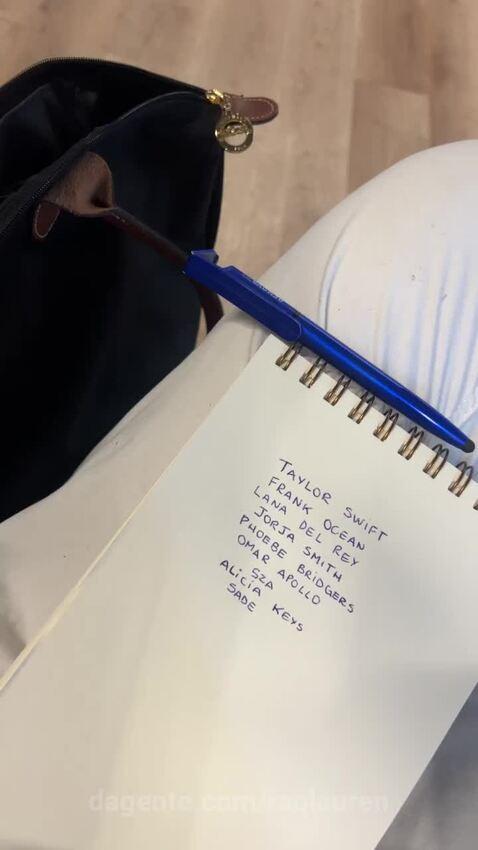 TAYLOR SWIFT
FRANK OCEAN
LANA DEL REY
JORJA SMITH
PHOEBE BRIDGERS
OMAR APOLLO
SZA
ALICIA KEYS
SADE
dagente.com/raplauren